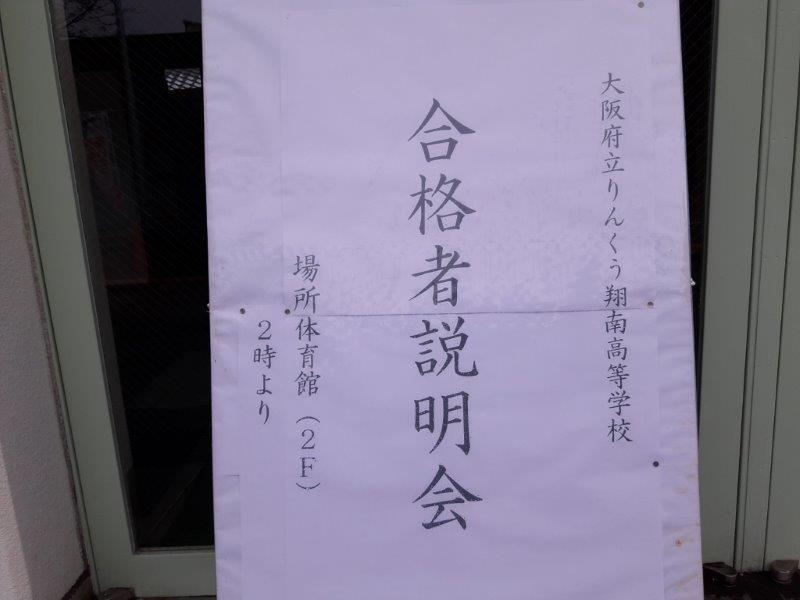 大阪府立りんくう翔南高等学校
合格者説明会
場所体育館（２Ｆ）
２時より